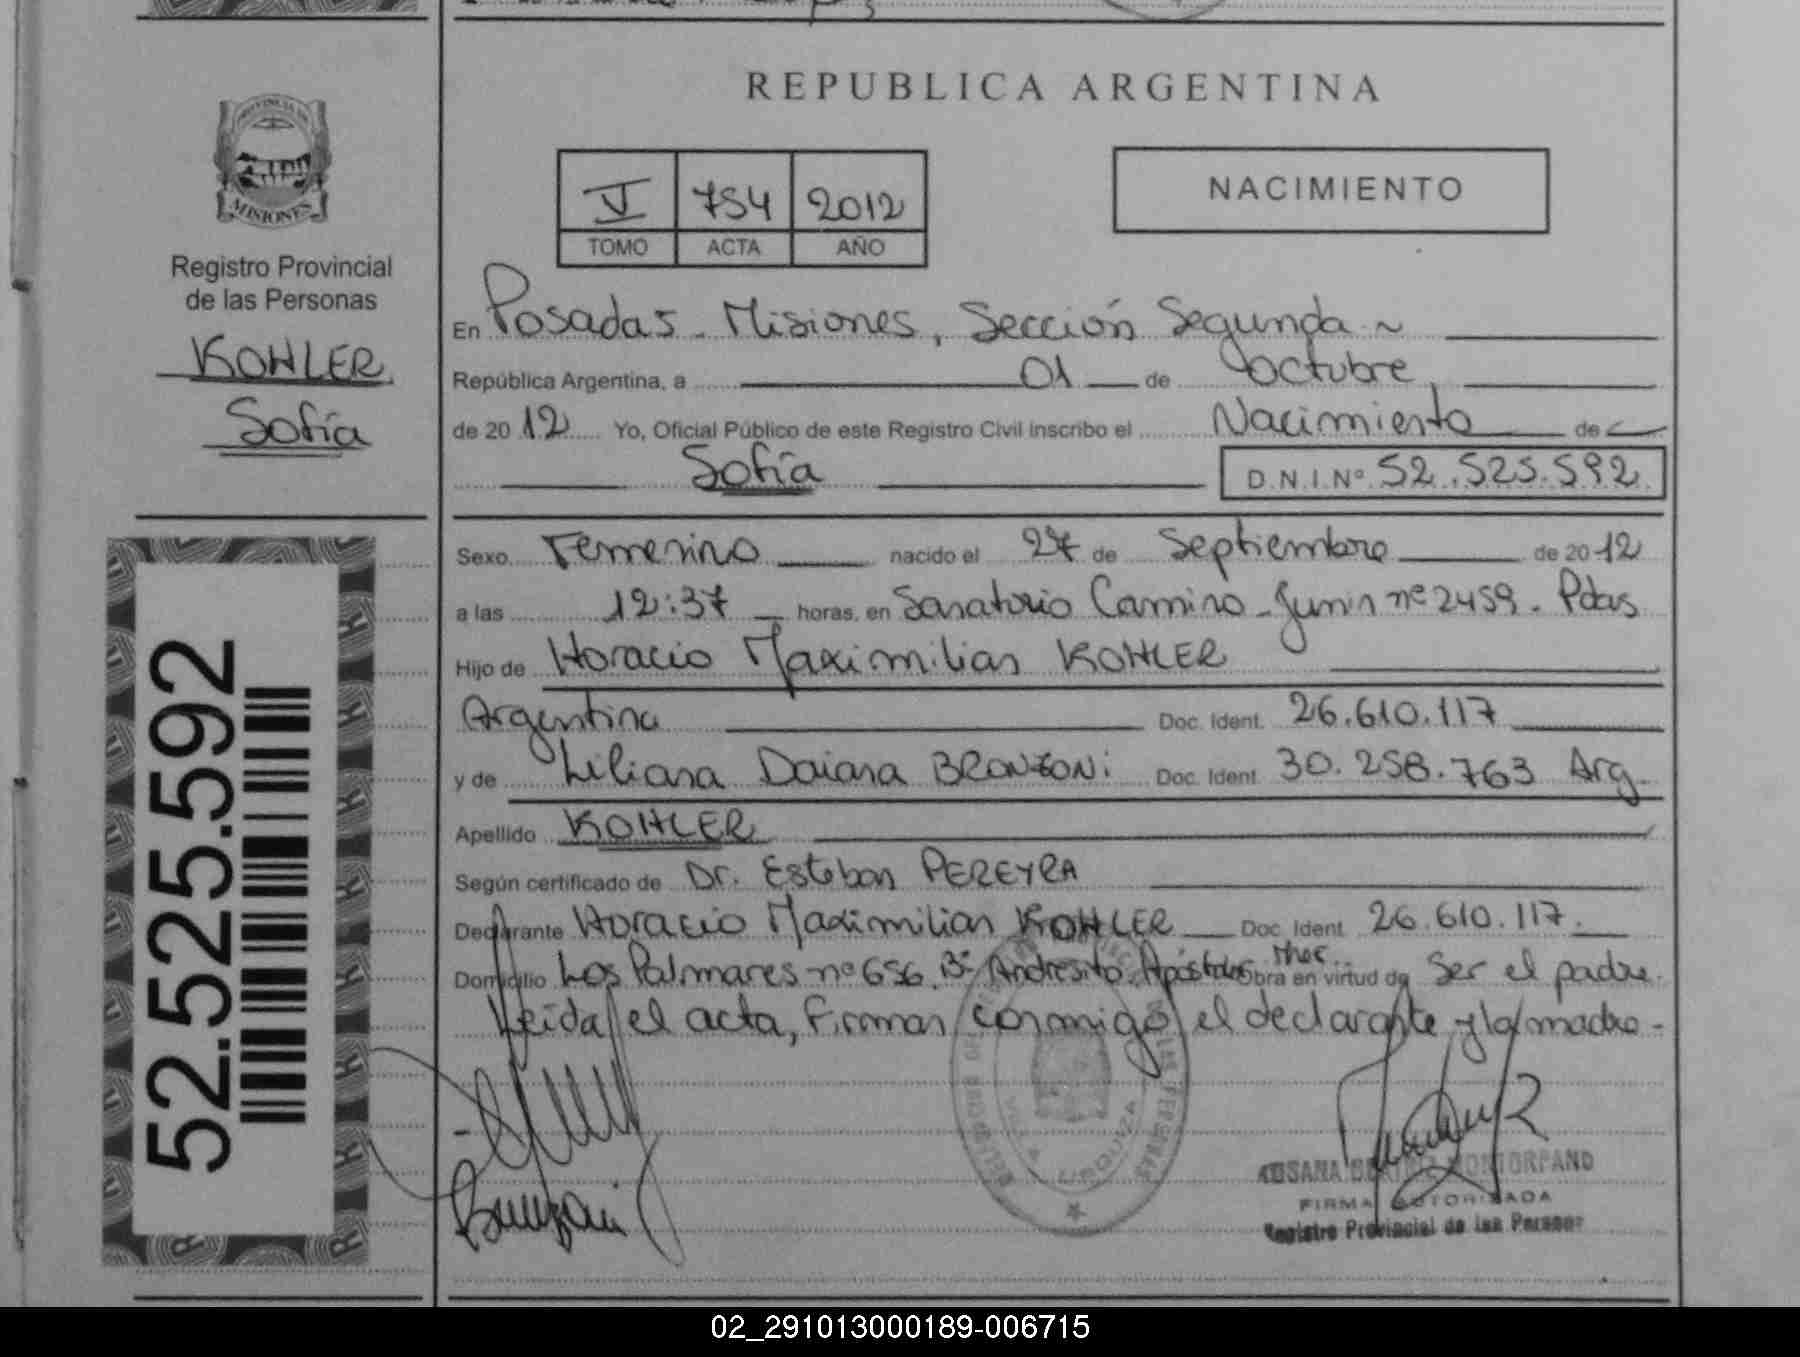 REPUBLICA ARGENTINA
PROVINCIA DE
MISIONES
Registro Provincial
de las Personas
KOHLER
Sofía
52.525.592
V 754 2012
TOMO ACTA AÑO
NACIMIENTO
En Posadas - Misiones, Sección Segunda ~
República Argentina, a 01 de octubre,
de 2012 Yo, Oficial Público de este Registro Civil inscribo el Nacimiento de
Sofía D.N.I.Nº 52.525.592
Sexo Femenino nacido el 27 de Septiembre de 2012
a las 12:37 horas, en Sanatorio Camino - Junin nº 2459 - Pdas
Hijo de Horacio Maximilian KOHLER
Argentina Doc. Ident. 26.610.117
y de Liliana Daiana BRONZONi Doc. Ident. 30.258.763 Arg.
Apellido KOHLER
Según certificado de Dr. Esteban PEREYRA
Declarante Horacio Maximilian KOHLER Doc. Ident. 26.610.117.
Domicilio Los Palmares nº 656. Bº Andresito. Apóstoles Mnes. Obra en virtud de Ser el padre.
Leída el acta, firman conmigo el declarante y la madre -
VILLA URQUIZA
MONTORFANO
FIRMA AUTORIZADA
Registro Provincial de las Personas
02_291013000189-006715